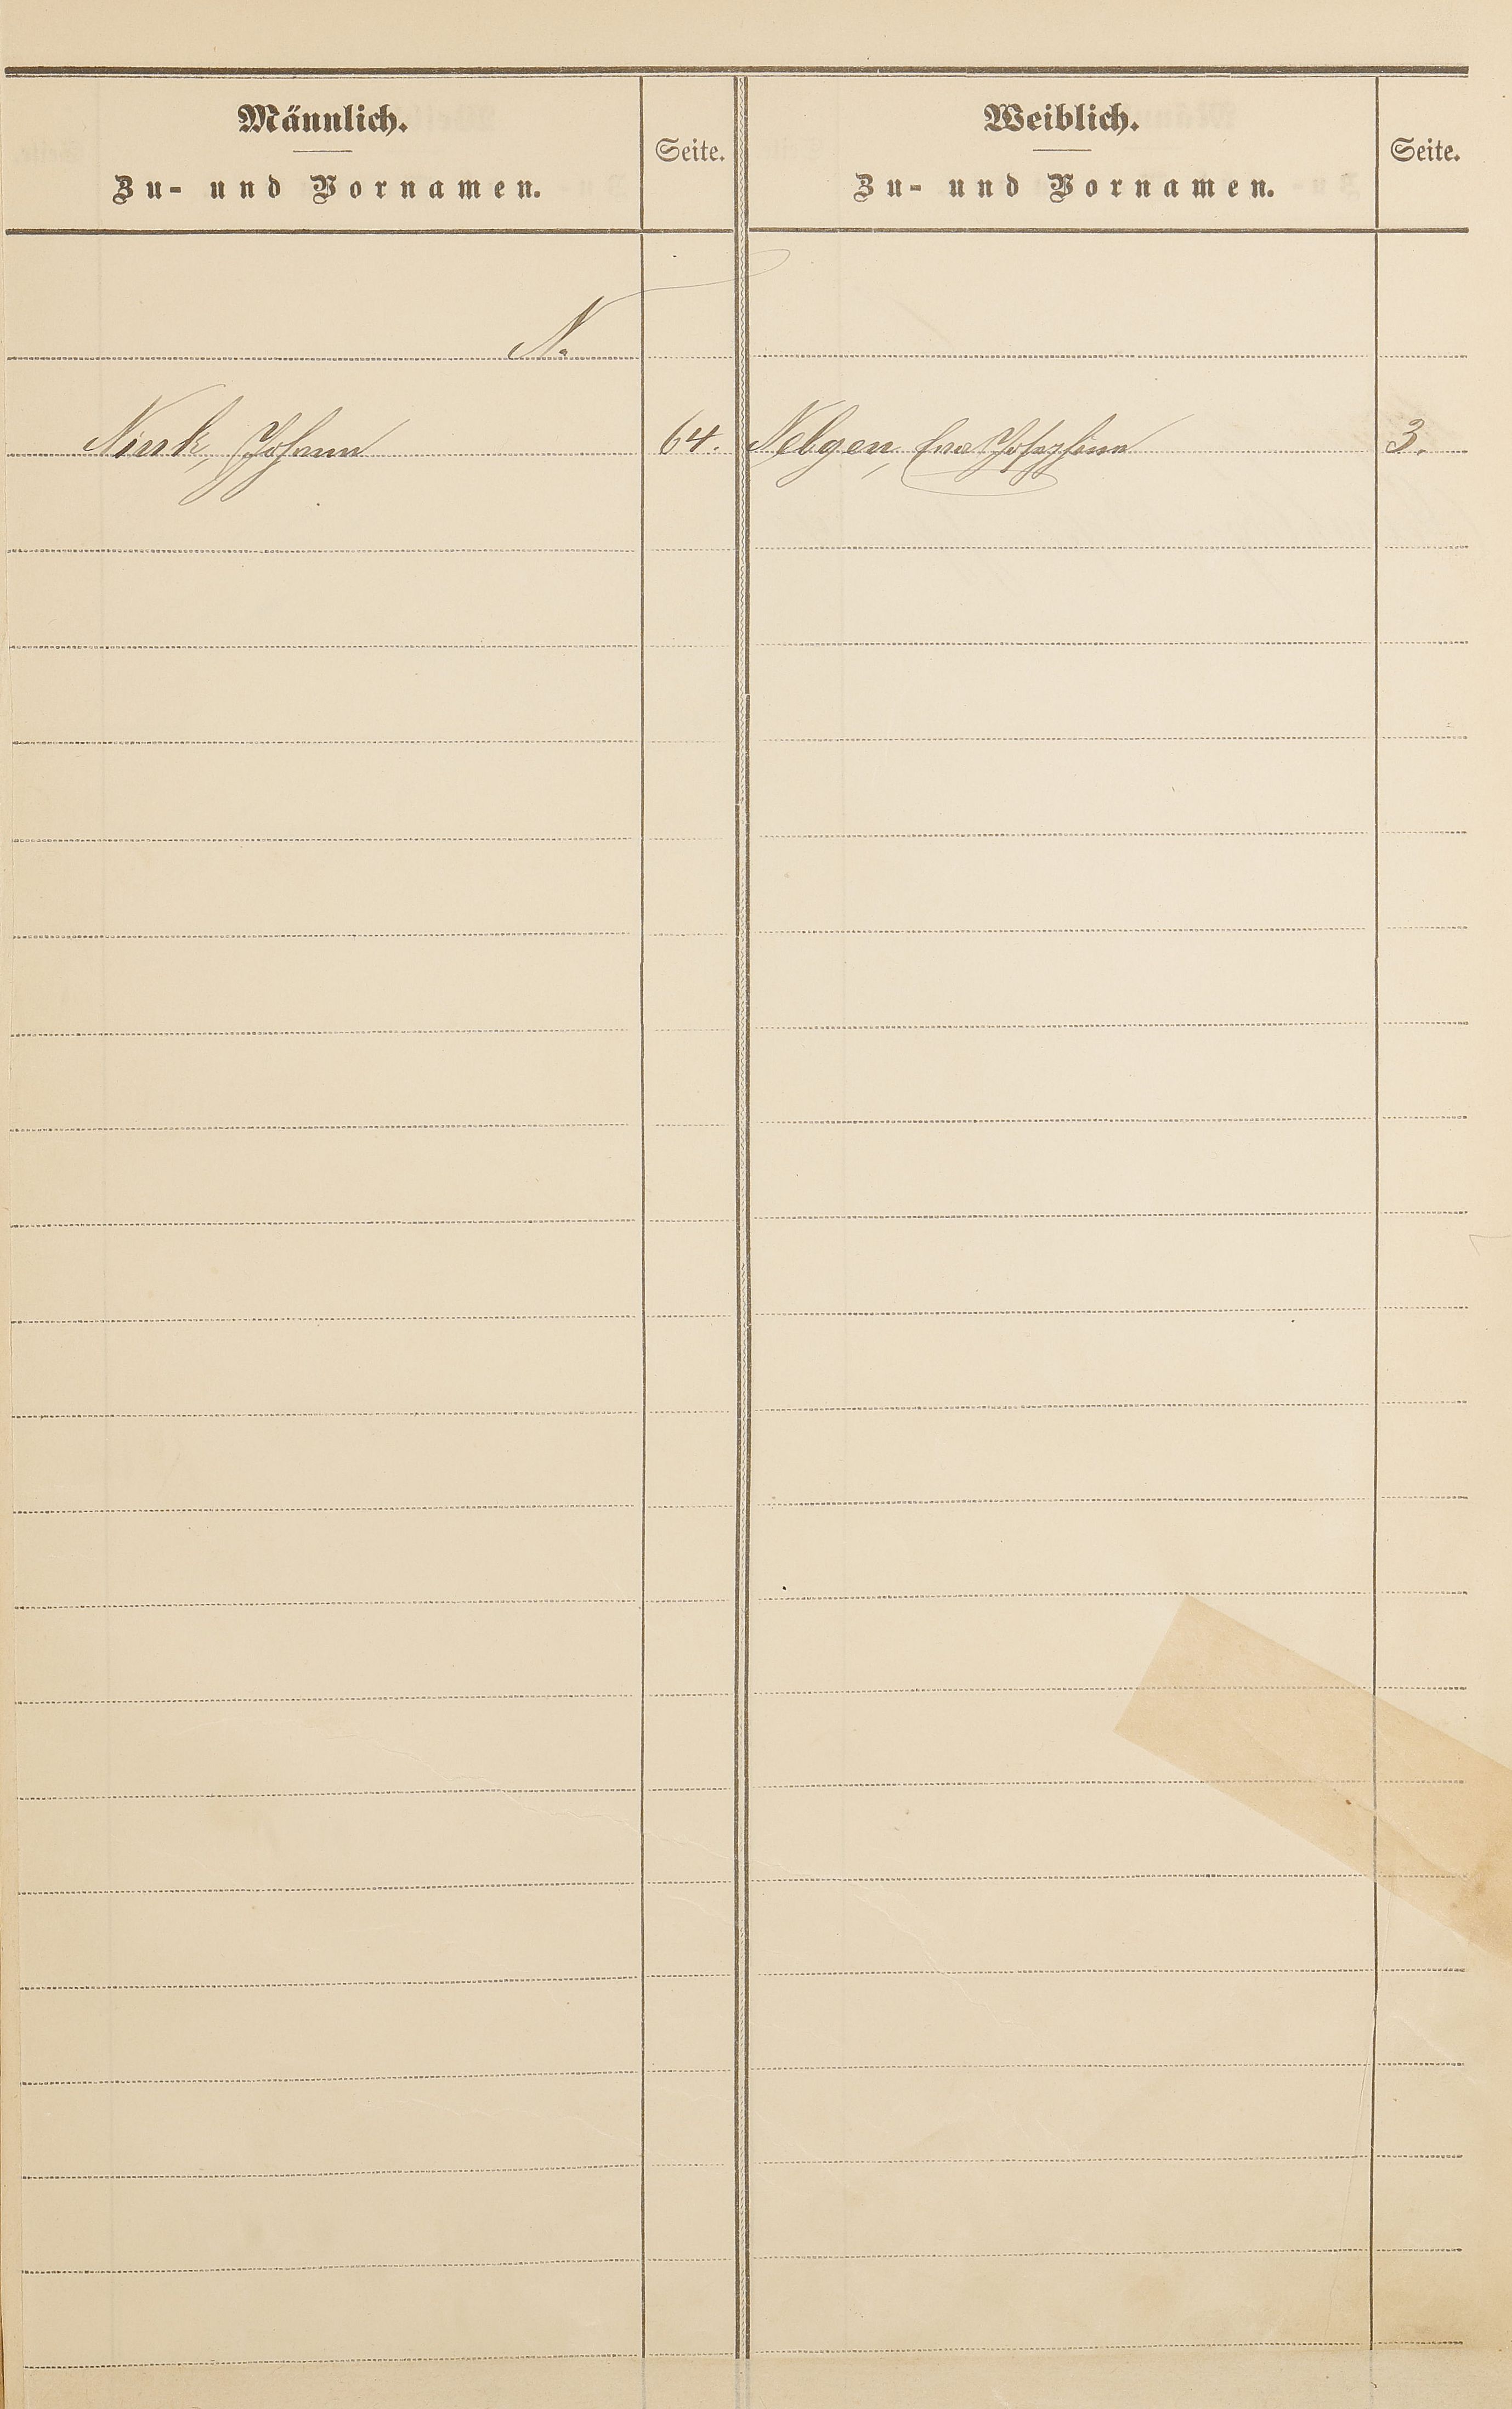 Männlich.
Zu- und Vornamen.
Seite.
Weiblich.
Zu- und Vornamen.
Seite.
N.
Nink, Johann 64. Nebgen, Eva Josephine 3.